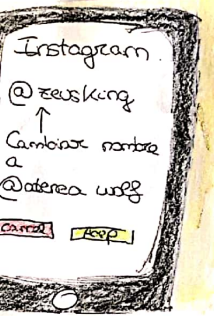 Instagram.
@zeusking
↑
Cambiar nombre
a
@aterea wolf
Cancel Acep